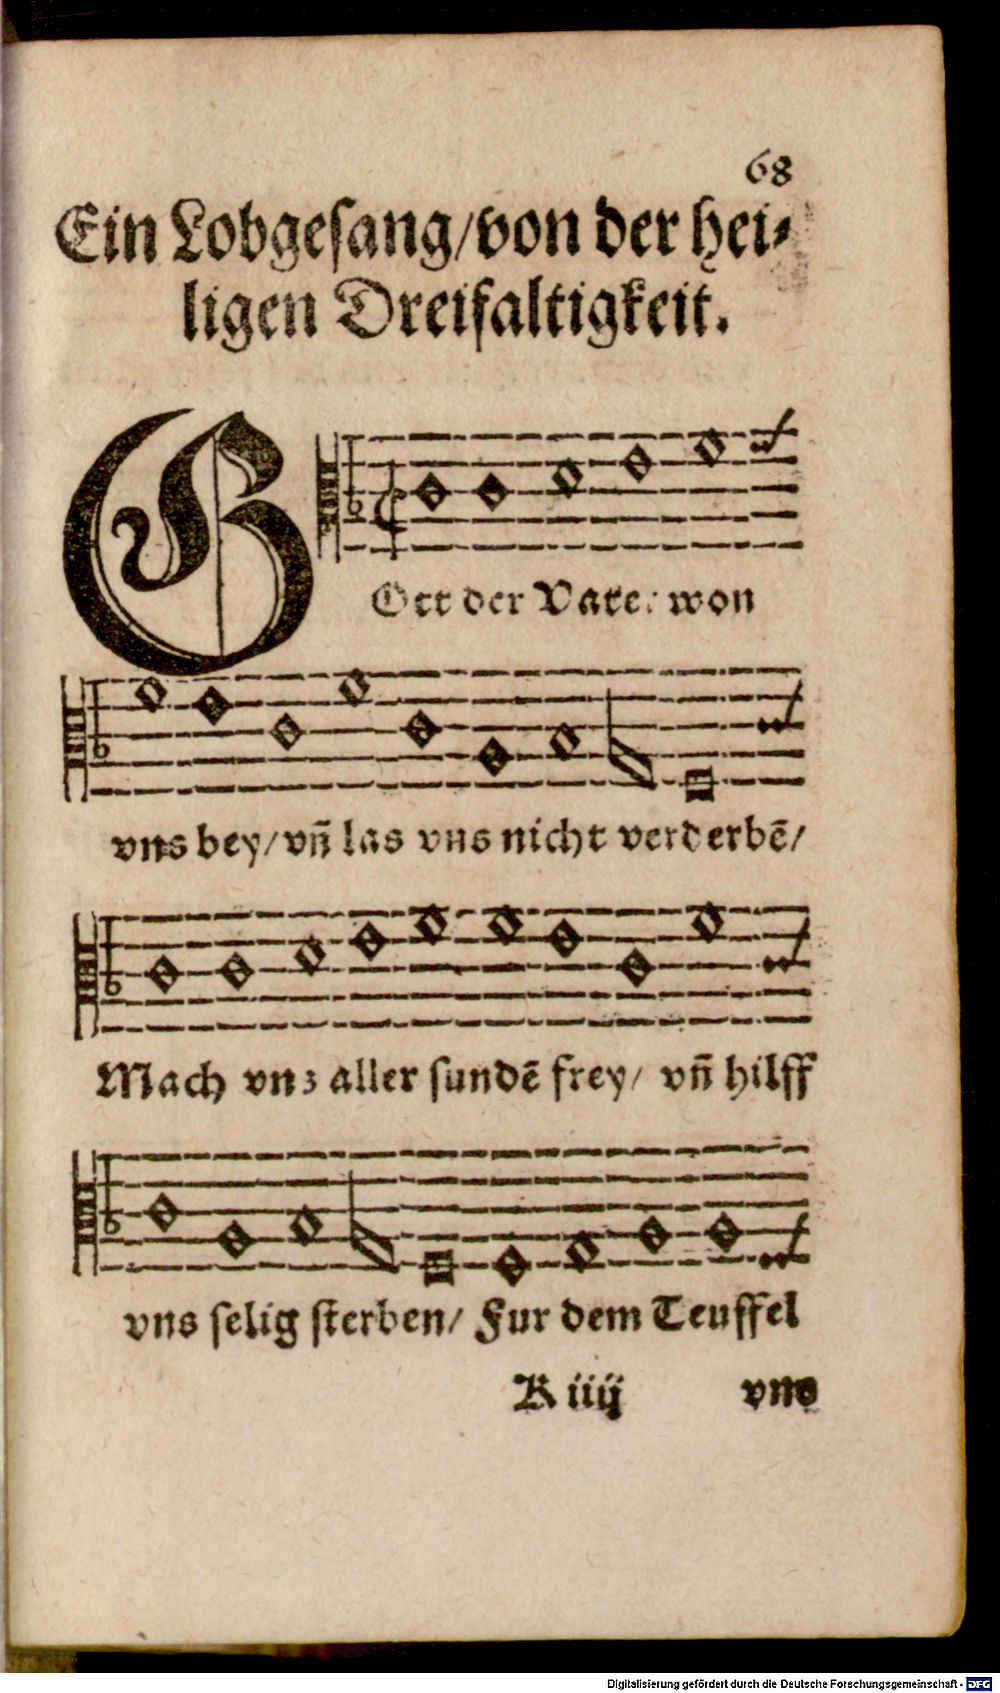 68
Ein Lobgesang/von der hei⸗
ligen Dreifaltigkeit.
GOtt der Vater won
vns bey/vñ las vns nicht verderbẽ/
Mach vns aller sundẽ frey/ vñ hilff
vns selig sterben/ Fur dem Teuffel
K iiij vns
Digitalisierung gefördert durch die Deutsche Forschungsgemeinschaft - DFG